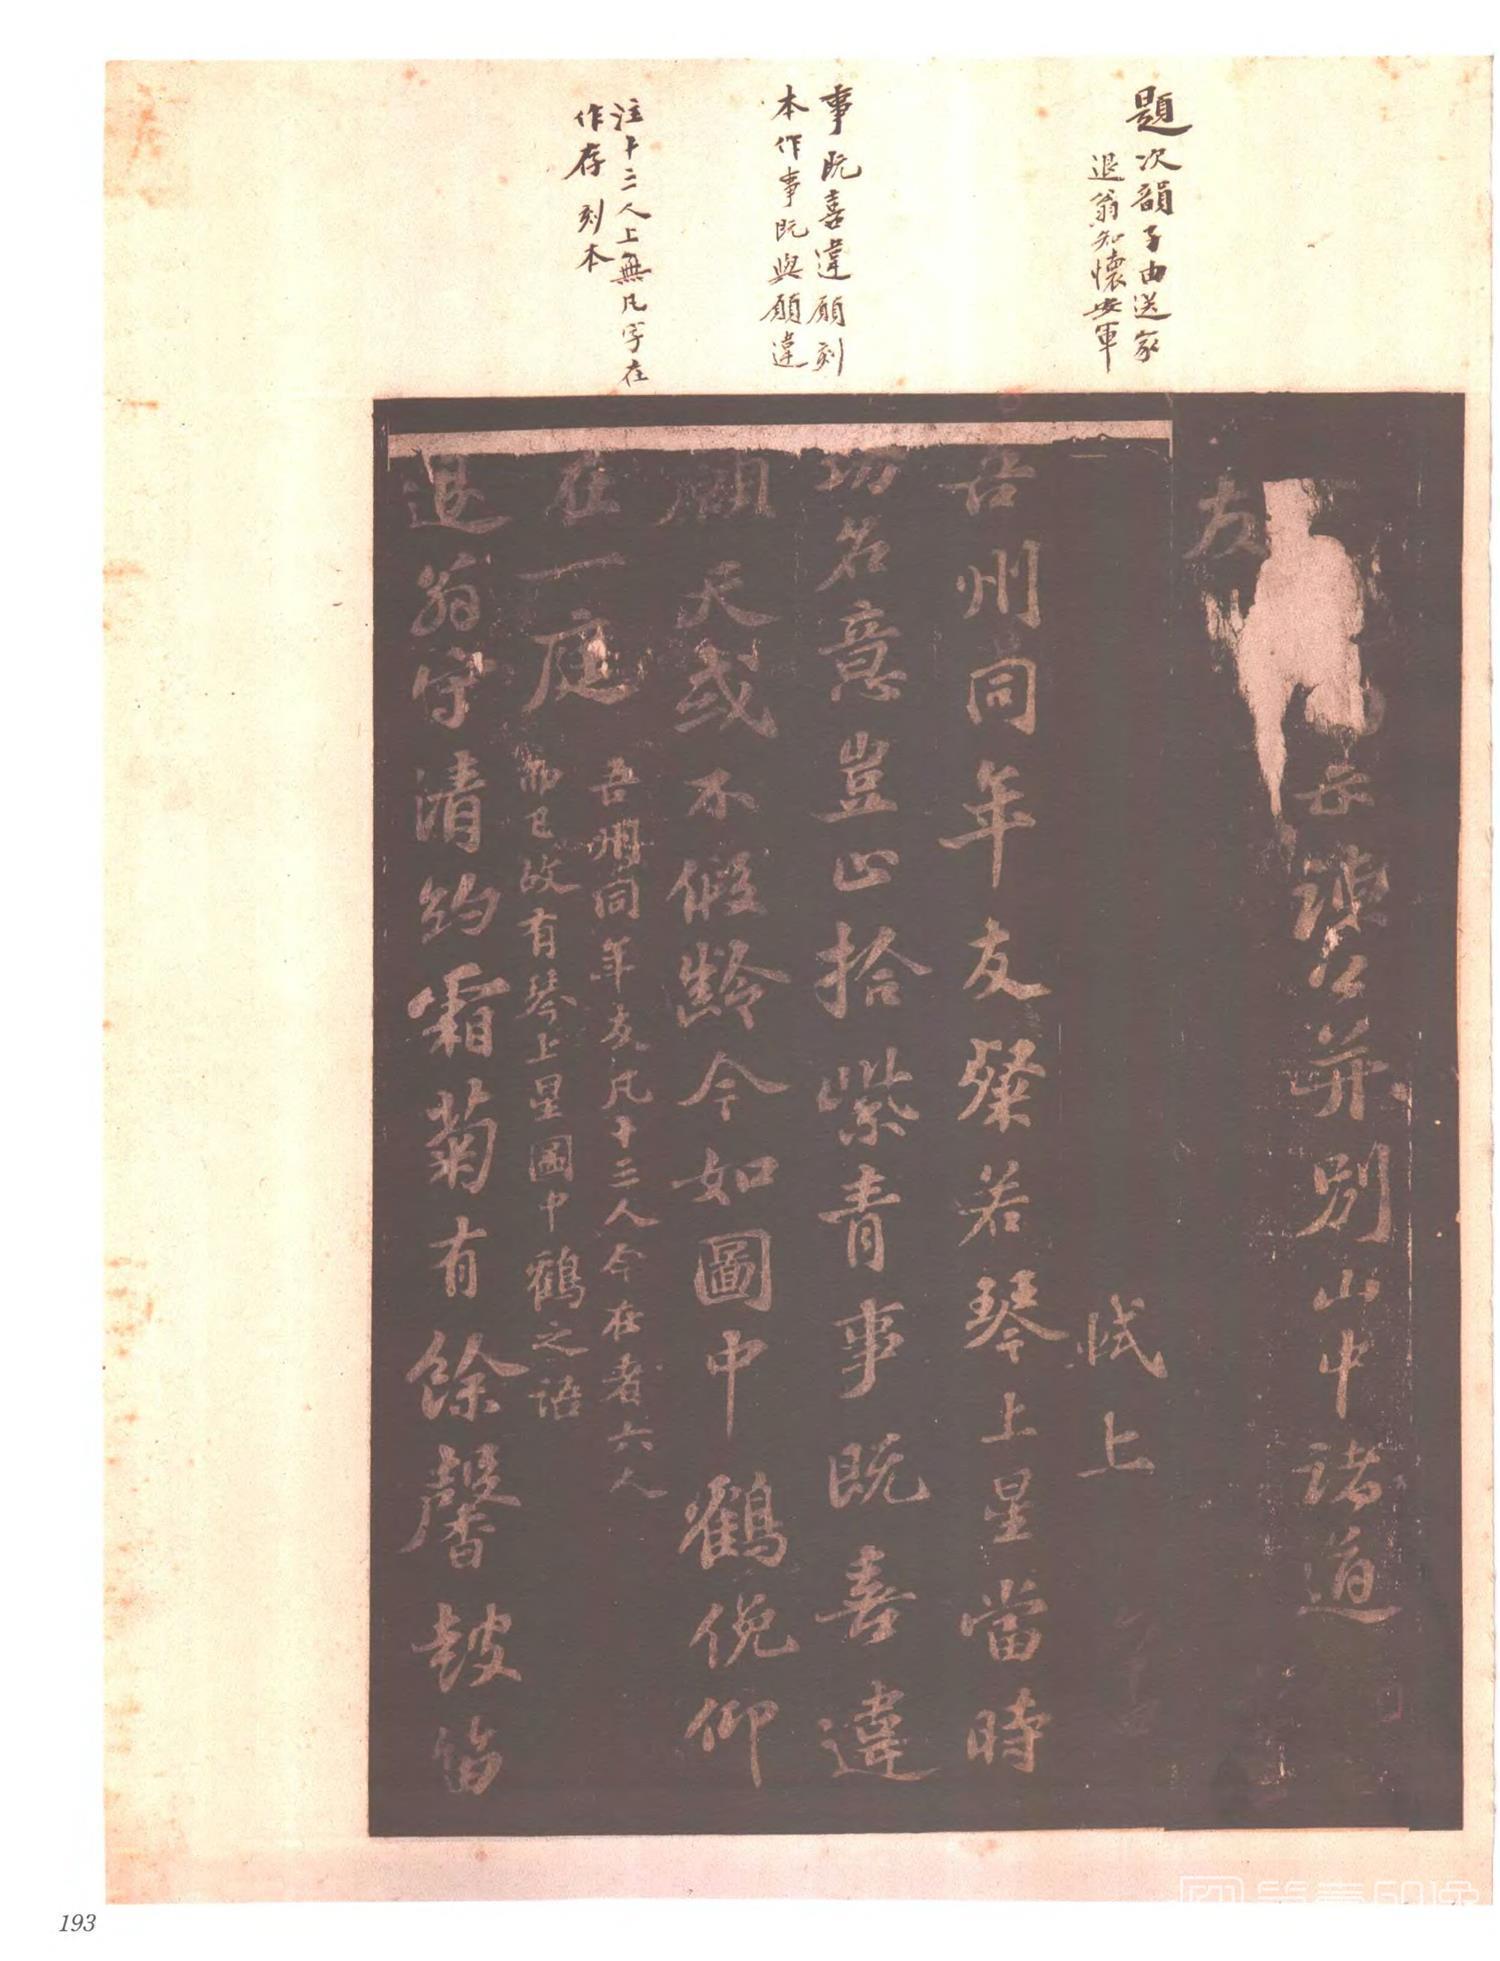 題次韻子由送家
退翁知懷安軍
事既喜違願刻
本作事既與願違
注十三人上無凡字在
作存 刻本
公并別山中諸道
友
軾上
吾州同年友粲若琴上星當時
功名意豈止拾紫青事既喜違
願天或不假齡今如圖中鶴俛仰
在一庭
吾州同年友凡十三人今在者六人
而已故有琴上星圖中鶴之語
退翁守清約霜菊有餘馨鼓笛
193